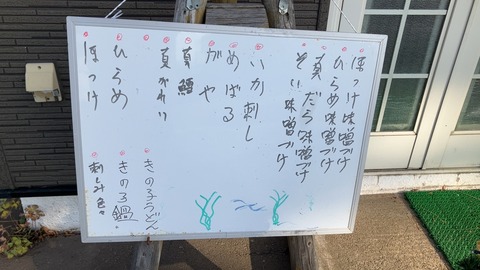 ほっけ味噌づけ
ひらめ味噌づけ
真だら味噌づけ
そい味噌づけ
いか刺し
めばる
がや
真鱈
真がれい
ひらめ
ほっけ
きの子うどん
きのこ鍋
刺しみ色々